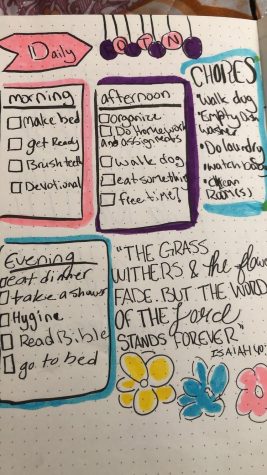 Daily
OTN
morning
Make bed
get Ready
Brush teeth
Devotional
afternoon
organize
Do Homework
and assignments
walk dog
eat something
free time!
CHORES
walk dog
Empty Dish
washer
Do laundry
watch
Clean
Room(s)
Evening
eat dinner
take a shower
Hygine
Read Bible
go to bed
"THE GRASS
WITHERS & the flow
FADE. BUT THE WORD
OF THE Lord
STANDS FOREVER"
ISAIAH 40: